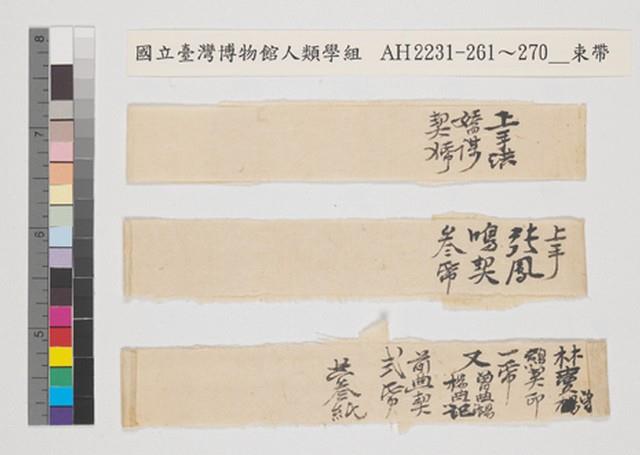 國立臺灣博物館人類學組 AH2231-261～270__束帶
上手洪
嬌謀
契帋
上手
張鳳
鳴契
叁帋
林
契即
一帋
又
前典契
弍帋
共叁紙
8
7
6
5